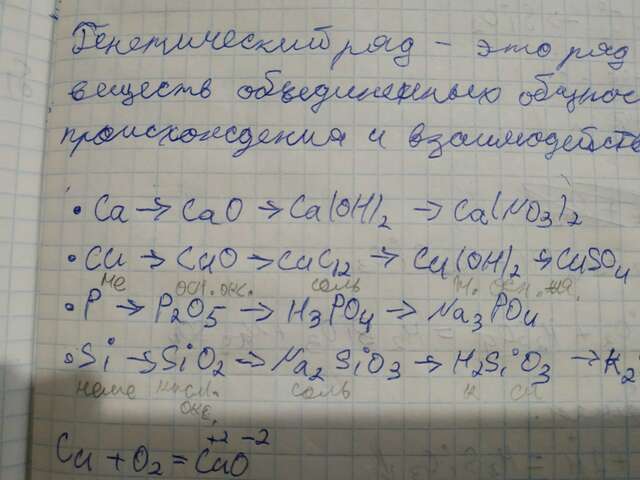 Генетический ряд - это ряд
веществ объединенных общнос
происхождения и взаимодейств
• Ca → CaO → Ca(OH)2 → Ca(NO3)2
• Cu → CuO → CuCl2 → Cu(OH)2 → CuSO4
ме осн. окс. соль н. осн.
• P → P2O5 → H3PO4 → Na3PO4
• Si → SiO2 → Na2SiO3 → H2SiO3 → K2
неме кисл. соль
окс.
+2 -2
Cu + O2 = CuO